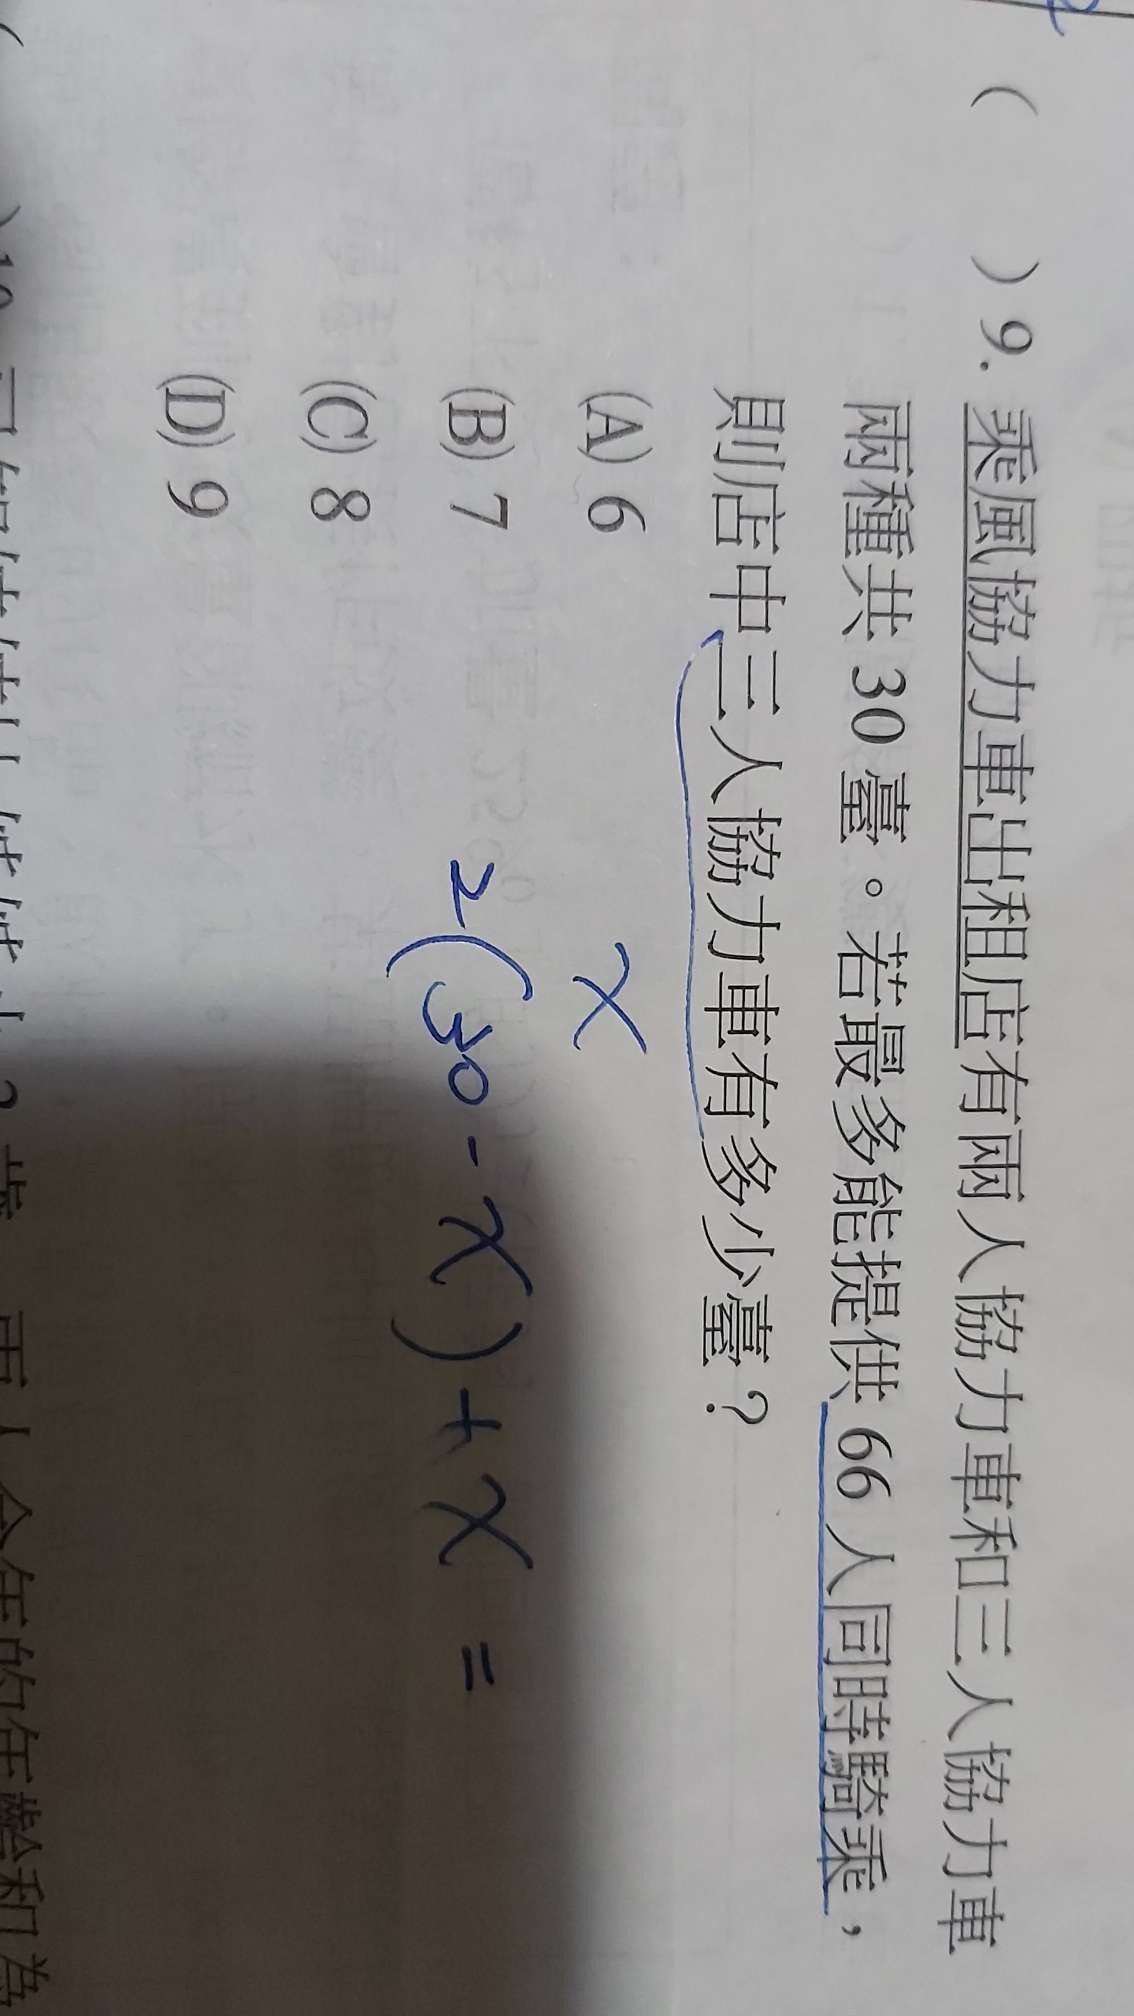 ( )9. 乘風協力車出租店有兩人協力車和三人協力車
兩種共 30 臺。若最多能提供 66 人同時騎乘，
則店中三人協力車有多少臺？
(A) 6
x
(B) 7
2(30-x)+x=
(C) 8
(D) 9